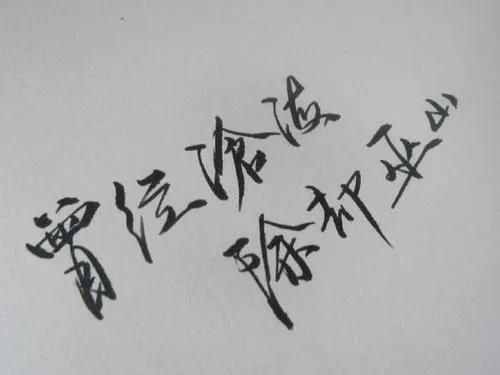 曾经沧海
除却巫山